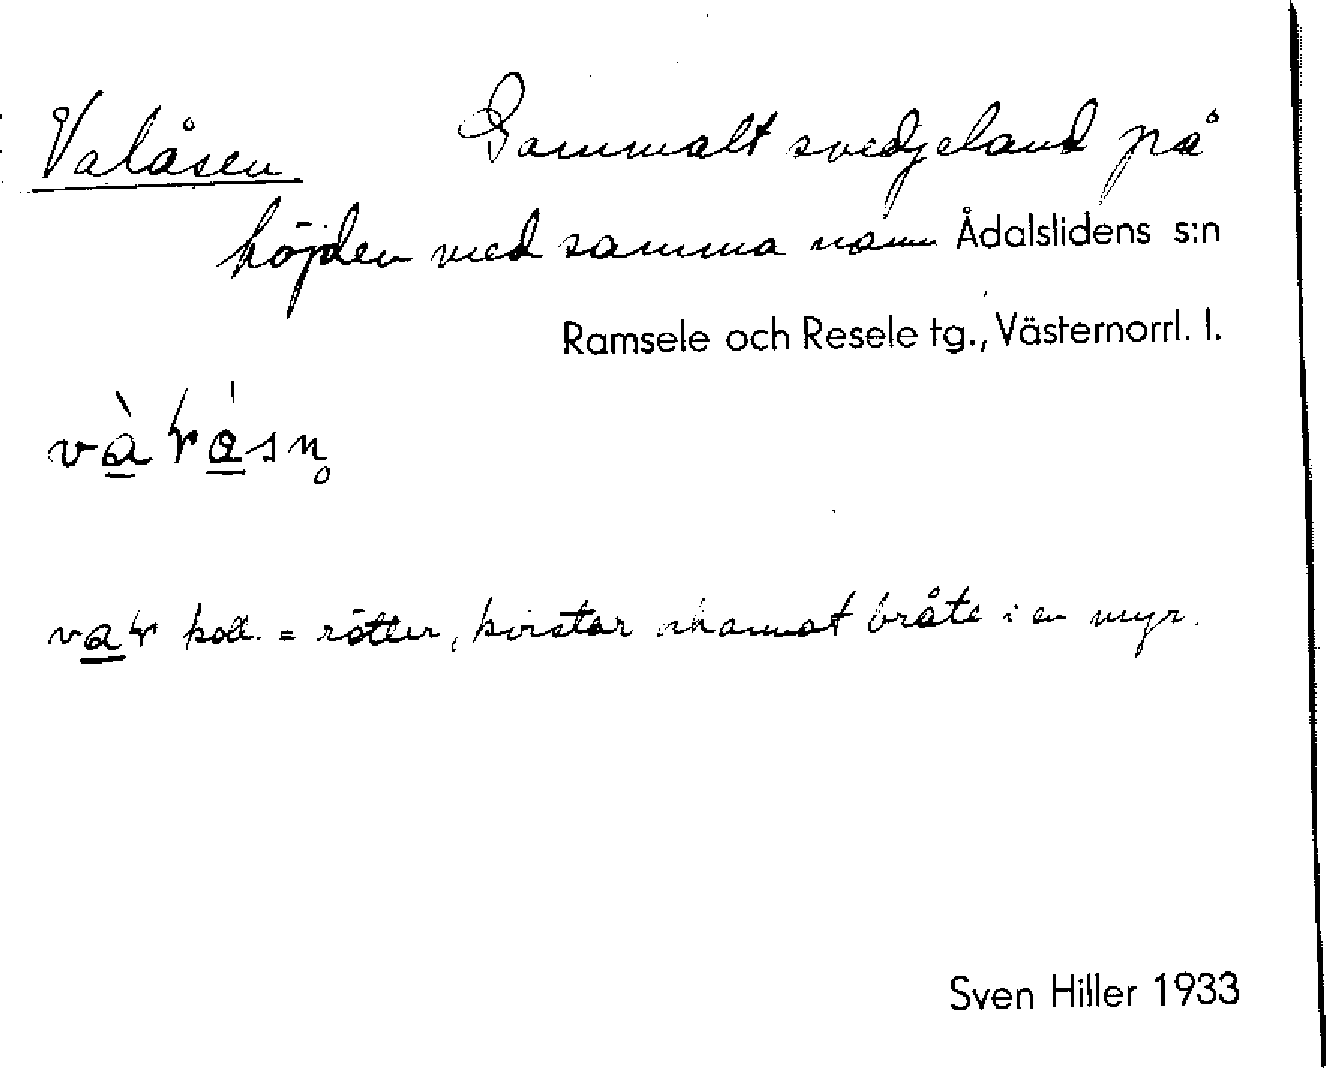 Valåsen Gammalt svedjeland på
höjden med samma namn Ådalslidens s:n
Ramsele och Resele tg., Västernorrl. l.
koll. = rötter, kvistar o annat bråte i en myr.
Sven Hiller 1933